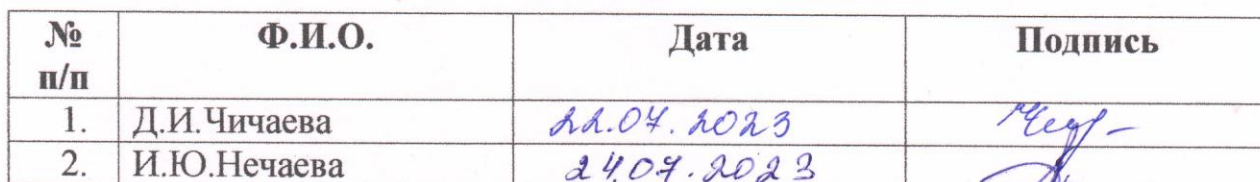 № п/п Ф.И.О. Дата Подпись
1. Д.И.Чичаева 22.07.2023
2. И.Ю.Нечаева 24.07.2023